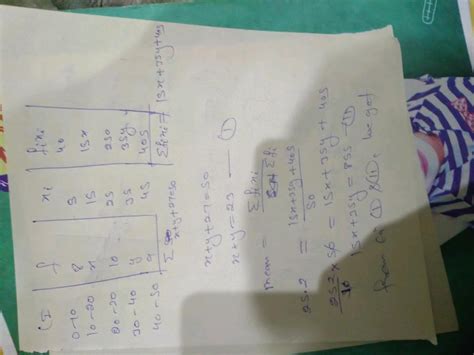 CI f xi fixi
0-10 8 5 40
10-20 x 15 15x
20-30 10 25 250
30-40 y 35 35y
40-50 9 45 405
Σ x+y+27=50 Σfixi = 15x+35y+405
x+y+27=50
x+y=23 — (I)
mean = Σfixi / Σfi
25.2 = 15x+35y+405 / 50
252/10 × 50 = 15x+35y+405
15x+35y=855 — (II)
from (I) & (II), we get